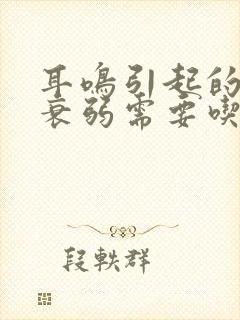 耳鸣引起的
衰弱需要喫
段軼群